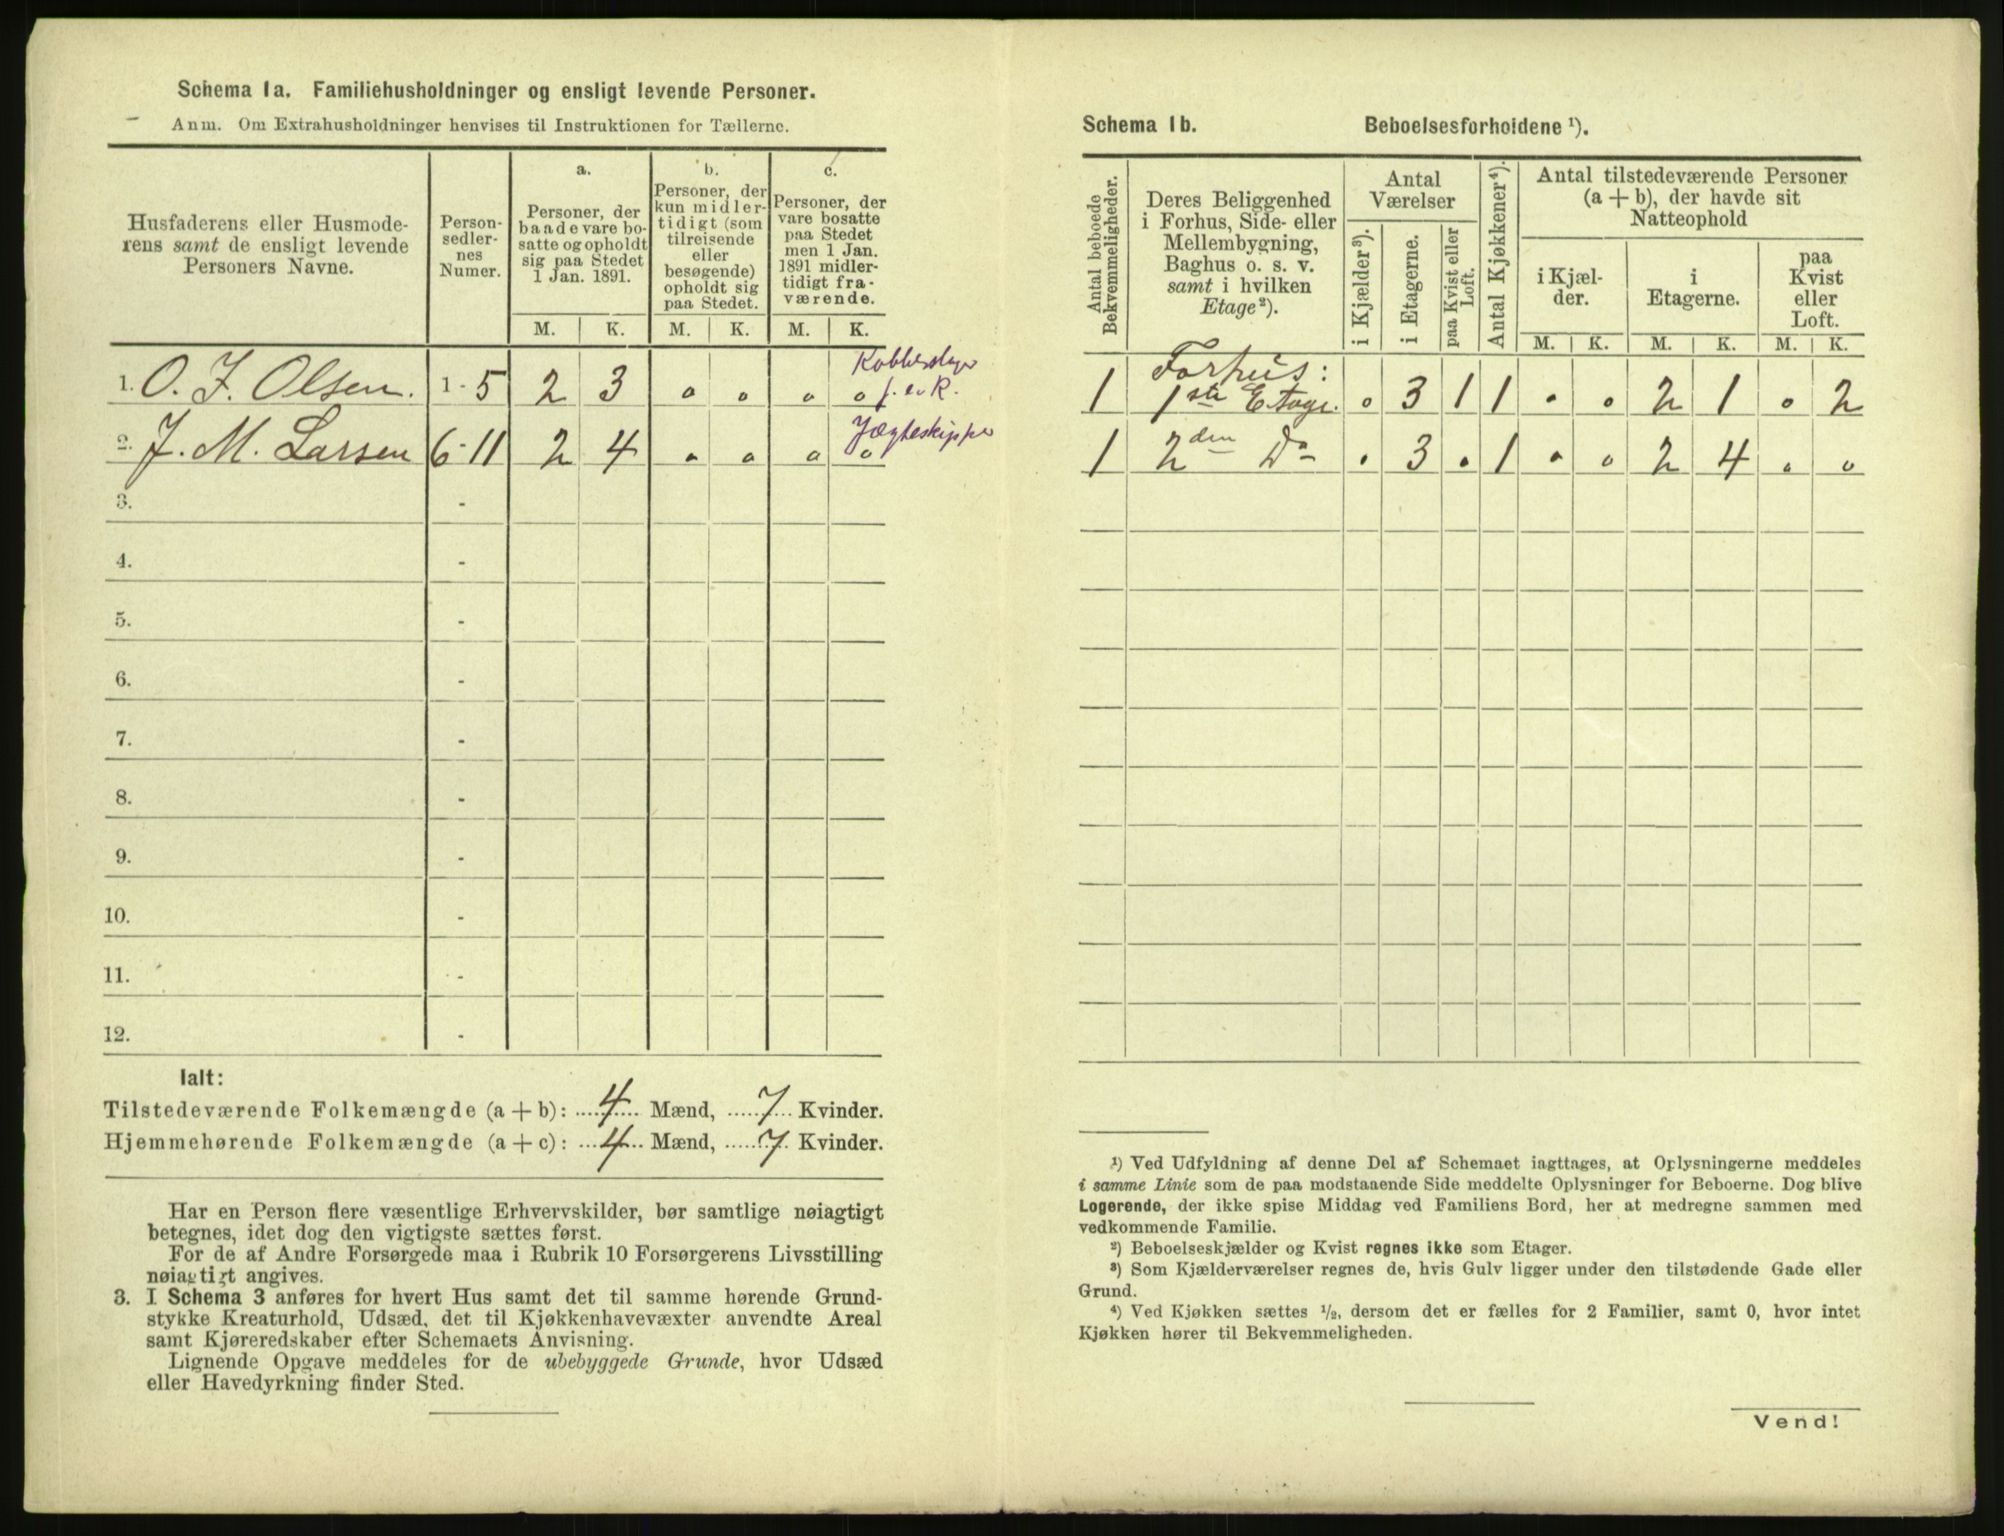 Schema 1a. Familiehusholdninger og ensligt levende Personer.
Anm. Om Extrahusholdninger henvises til Instruktionen for Tællerne.
Husfaderens eller Husmoderens samt de ensligt levende Personers Navne.
Personsedlernes Numer.
a.
Personer, der baade vare bosatte og opholdt sig paa Stedet 1 Jan. 1891.
b.
Personer, der kun midlertidigt (som tilreisende eller besøgende) opholdt sig paa Stedet.
c.
Personer, der vare bosatte paa Stedet men 1 Jan. 1891 midlertidigt fraværende.
M. K. M. K. M. K.
1. O. J. Olsen. 1-5 2 3 o o o o Kobberslager f. e. R.
2. J. M. Larsen 6-11 2 4 o o o o Jægteskipper
3. -
4. -
5. -
6. -
7. -
8. -
9. -
10. -
11. -
12. -
Ialt:
Tilstedeværende Folkemængde (a + b): 4 Mænd, 7 Kvinder.
Hjemmehørende Folkemængde (a + c): 4 Mænd, 7 Kvinder.
Har en Person flere væsentlige Erhvervskilder, bør samtlige nøiagtigt
betegnes, idet dog den vigtigste sættes først.
For de af Andre Forsørgede maa i Rubrik 10 Forsørgerens Livsstilling
nøiagtigt angives.
3. I Schema 3 anføres for hvert Hus samt det til samme hørende Grund-
stykke Kreaturhold, Udsæd, det til Kjøkkenhavevæxter anvendte Areal
samt Kjøreredskaber efter Schemaets Anvisning.
Lignende Opgave meddeles for de ubebyggede Grunde, hvor Udsæd
eller Havedyrkning finder Sted.
Schema 1b. Beboelsesforholdene ¹).
Antal beboede Bekvemmeligheder.
Deres Beliggenhed i Forhus, Side- eller Mellembygning, Baghus o. s. v. samt i hvilken Etage²).
Antal Værelser
i Kjælder³).
i Etagerne.
paa Kvist eller Loft.
Antal Kjøkkener⁴).
Antal tilstedeværende Personer (a + b), der havde sit Natteophold
i Kjælder.
i Etagerne.
paa Kvist eller Loft.
M. K. M. K. M. K.
1 Forhus: 1ste Etage. o 3 1 1 o o 2 1 o 2
1 2den Do . 3 . 1 o o 2 4 o o
¹) Ved Udfyldning af denne Del af Schemaet iagttages, at Oplysningerne meddeles
i samme Linie som de paa modstaaende Side meddelte Oplysninger for Beboerne. Dog blive
Logerende, der ikke spise Middag ved Familiens Bord, her at medregne sammen med
vedkommende Familie.
²) Beboelseskjælder og Kvist regnes ikke som Etager.
³) Som Kjælderværelser regnes de, hvis Gulv ligger under den tilstødende Gade eller
Grund.
⁴) Ved Kjøkken sættes ¹/₂, dersom det er fælles for 2 Familier, samt 0, hvor intet
Kjøkken hører til Bekvemmeligheden.
Vend!